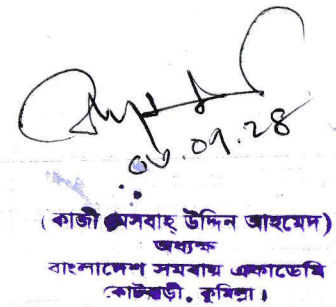 ০৬.০৭.২৪
(কাজী মেসবাহ্ উদ্দিন আহমেদ)
অধ্যক্ষ
বাংলাদেশ সমবায় একাডেমি
কোটবাড়ী, কুমিল্লা।